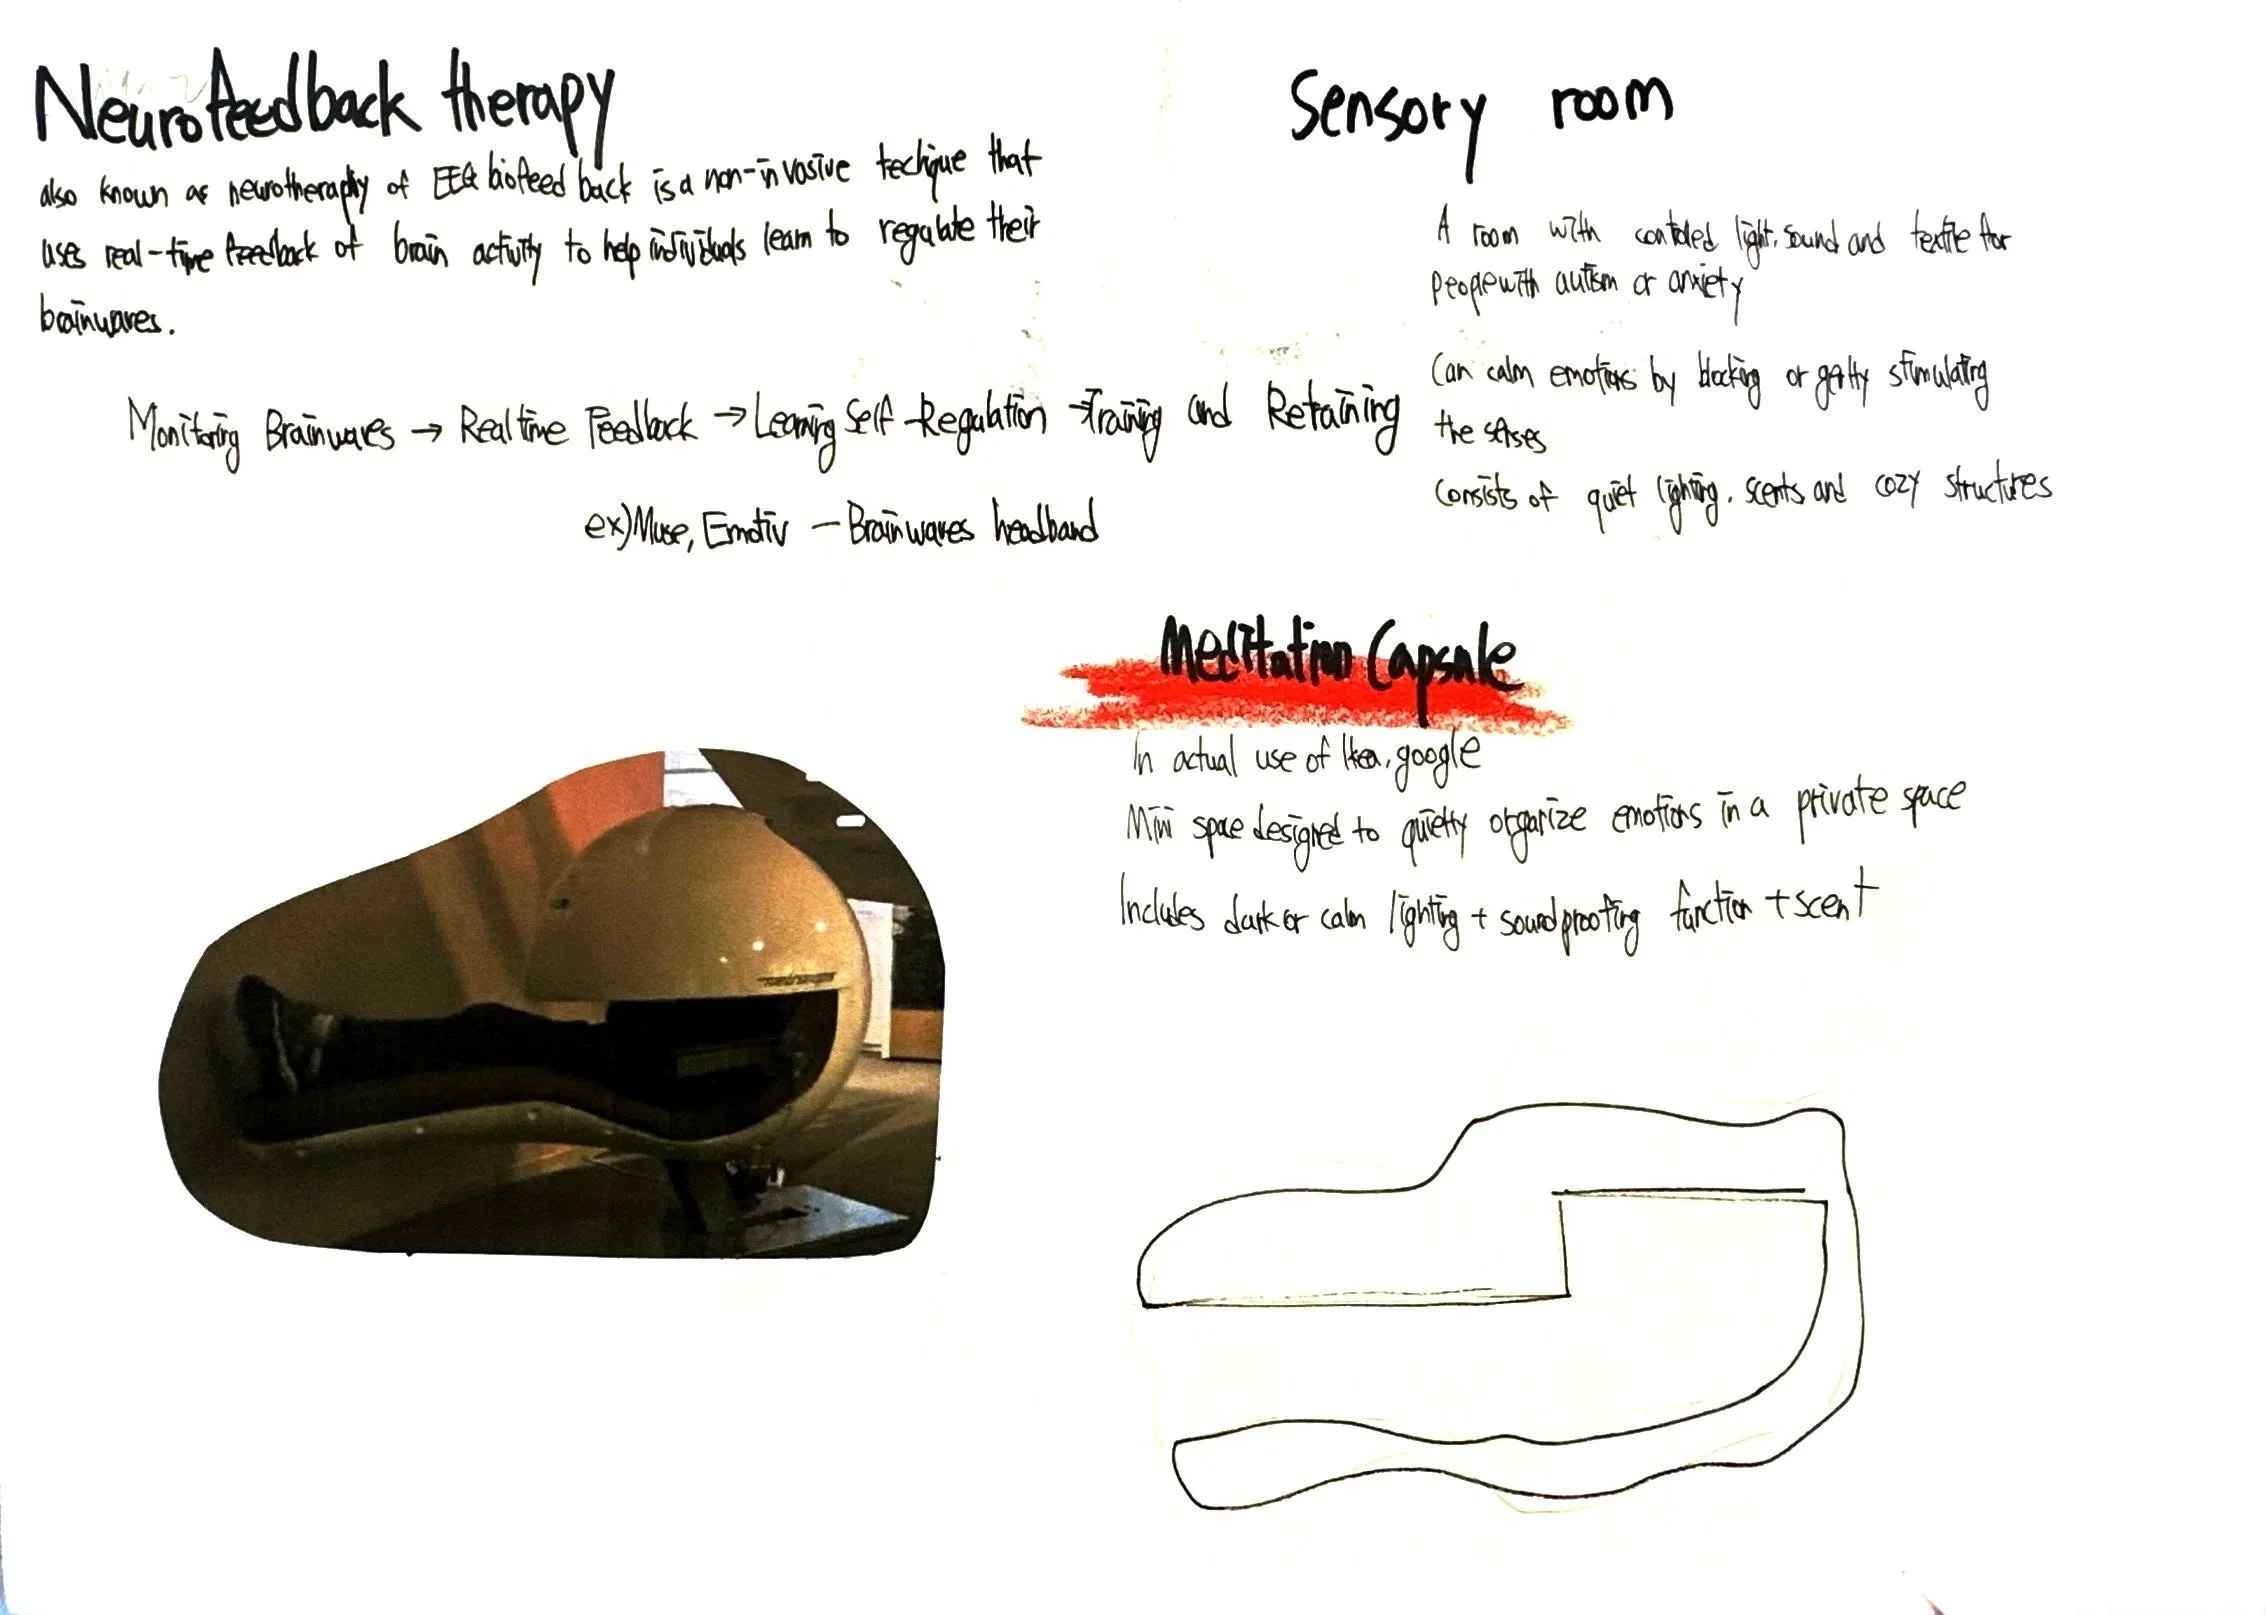 Neurofeedback therapy
also known as neurotheraphy of EEG biofeed back is a non-invasive techique that
uses real-time feedback of brain activity to help individuals learn to regulate their
brainwaves.
Monitoring Brainwaves → Real time Feedback → Learning Self-Regulation → Training and Retaining
ex) Muse, Emotiv – Brainwaves headband
Sensory room
A room with controled light, sound and textile for
people with autism or anxiety
Can calm emotions by blocking or gently stimulating
the senses
Consists of quiet lighting, scents and cozy structures
Meditation Capsule
In actual use of Ikea, google
Mini space designed to quietly organize emotions in a private space
Includes dark or calm lighting + soundproofing function + scent